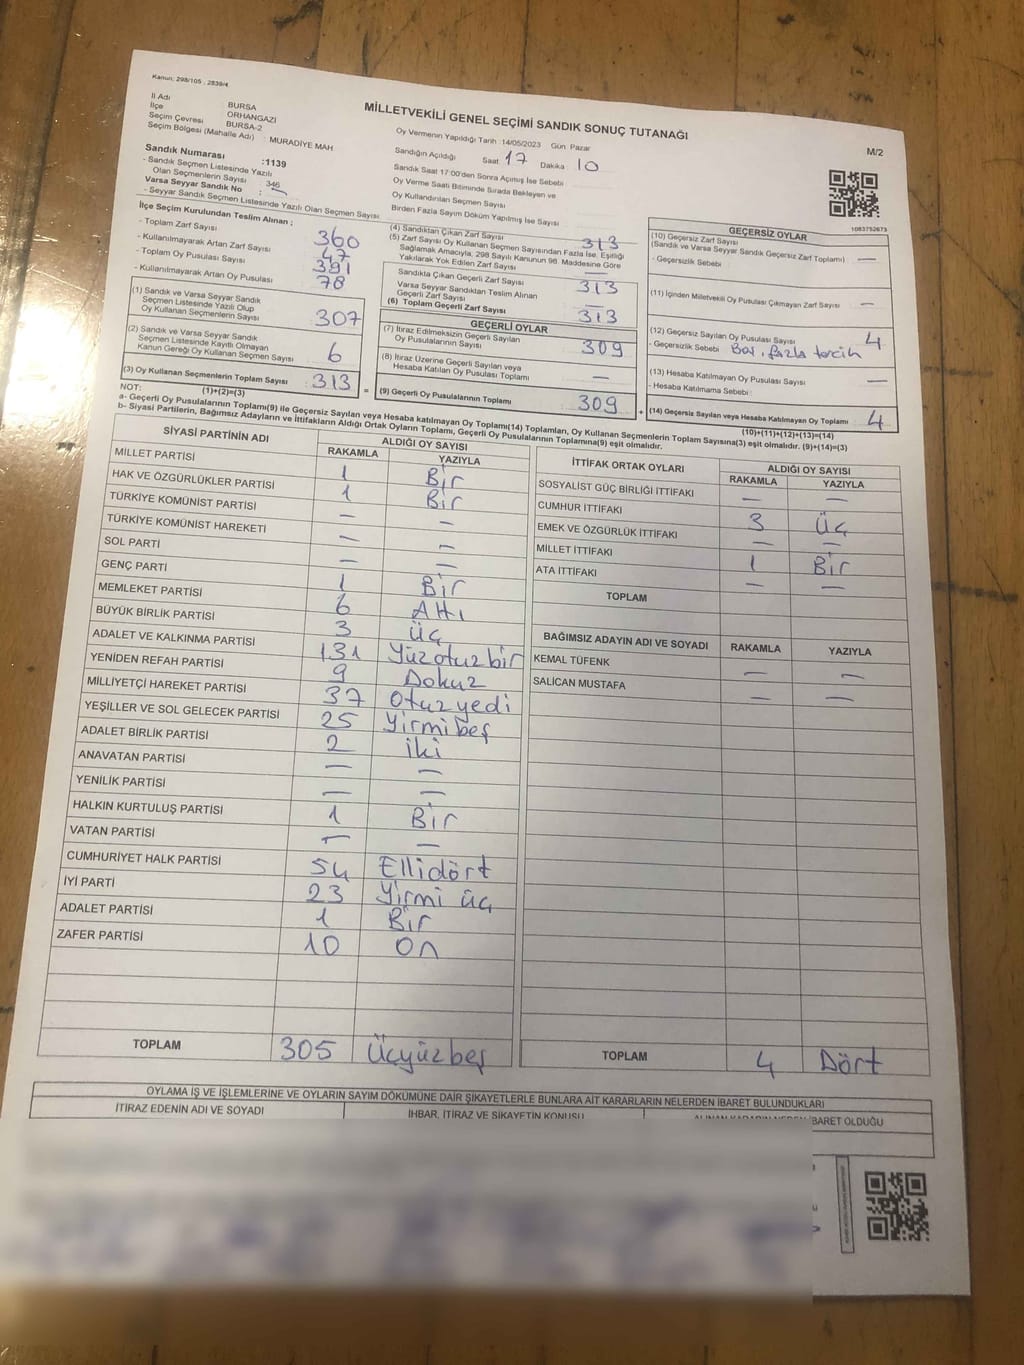 Kanun: 298/105 , 2839/4
MİLLETVEKİLİ GENEL SEÇİMİ SANDIK SONUÇ TUTANAĞI
M/2
İl Adı BURSA
İlçe ORHANGAZİ
Seçim Çevresi BURSA-2
Seçim Bölgesi (Mahalle Adı) : MURADİYE MAH
Oy Vermenin Yapıldığı Tarih 14/05/2023 Gün Pazar
Sandığın Açıldığı Saat 17 Dakika 10
Sandık Saat 17:00'den Sonra Açılmış İse Sebebi
Oy Verme Saati Bitiminde Sırada Bekleyen ve
Oy Kullandırılan Seçmen Sayısı
Birden Fazla Sayım Döküm Yapılmış İse Sayısı
Sandık Numarası :1139
- Sandık Seçmen Listesinde Yazılı
Olan Seçmenlerin Sayısı : 346
Varsa Seyyar Sandık No :
- Seyyar Sandık Seçmen Listesinde Yazılı Olan Seçmen Sayısı
1083752673
İlçe Seçim Kurulundan Teslim Alınan ;
- Toplam Zarf Sayısı 360
- Kullanılmayarak Artan Zarf Sayısı 47
- Toplam Oy Pusulası Sayısı 391
- Kullanılmayarak Artan Oy Pusulası 78
(1) Sandık ve Varsa Seyyar Sandık
Seçmen Listesinde Yazılı Olup
Oy Kullanan Seçmenlerin Sayısı 307
(2) Sandık ve Varsa Seyyar Sandık
Seçmen Listesinde Kayıtlı Olmayan
Kanun Gereği Oy Kullanan Seçmen Sayısı 6
(3) Oy Kullanan Seçmenlerin Toplam Sayısı 313 =
(1)+(2)=(3)
(4) Sandıktan Çıkan Zarf Sayısı 313
(5) Zarf Sayısı Oy Kullanan Seçmen Sayısından Fazla İse, Eşitliği
Sağlamak Amacıyla, 298 Sayılı Kanunun 98. Maddesine Göre
Yakılarak Yok Edilen Zarf Sayısı —
Sandıkta Çıkan Geçerli Zarf Sayısı 313
Varsa Seyyar Sandıktan Teslim Alınan
Geçerli Zarf Sayısı —
(6) Toplam Geçerli Zarf Sayısı 313
GEÇERLİ OYLAR
(7) İtiraz Edilmeksizin Geçerli Sayılan
Oy Pusulalarının Sayısı 309
(8) İtiraz Üzerine Geçerli Sayılan veya
Hesaba Katılan Oy Pusulası Toplamı —
(9) Geçerli Oy Pusulalarının Toplamı 309 +
GEÇERSİZ OYLAR
(10) Geçersiz Zarf Sayısı
(Sandık ve Varsa Seyyar Sandık Geçersiz Zarf Toplamı)
- Geçersizlik Sebebi —
(11) İçinden Milletvekili Oy Pusulası Çıkmayan Zarf Sayısı —
(12) Geçersiz Sayılan Oy Pusulası Sayısı 4
- Geçersizlik Sebebi Boş, fazla tercih
(13) Hesaba Katılmayan Oy Pusulası Sayısı —
- Hesaba Katılmama Sebebi :
(14) Geçersiz Sayılan veya Hesaba Katılmayan Oy Toplamı 4
(10)+(11)+(12)+(13)=(14)
NOT:
a- Geçerli Oy Pusulalarının Toplamı(9) ile Geçersiz Sayılan veya Hesaba katılmayan Oy Toplamı(14) Toplamları, Oy Kullanan Seçmenlerin Toplam Sayısına(3) eşit olmalıdır. (9)+(14)=(3)
b- Siyasi Partilerin, Bağımsız Adayların ve İttifakların Aldığı Ortak Oyların Toplamı, Geçerli Oy Pusulalarının Toplamına(9) eşit olmalıdır.
SİYASİ PARTİNİN ADI ALDIĞI OY SAYISI
RAKAMLA YAZIYLA
MİLLET PARTİSİ 1 Bir
HAK VE ÖZGÜRLÜKLER PARTİSİ 1 Bir
TÜRKİYE KOMÜNİST PARTİSİ — —
TÜRKİYE KOMÜNİST HAREKETİ — —
SOL PARTİ — —
GENÇ PARTİ 1 Bir
MEMLEKET PARTİSİ 6 Altı
BÜYÜK BİRLİK PARTİSİ 3 Üç
ADALET VE KALKINMA PARTİSİ 131 Yüzotuzbir
YENİDEN REFAH PARTİSİ 9 Dokuz
MİLLİYETÇİ HAREKET PARTİSİ 37 Otuzyedi
YEŞİLLER VE SOL GELECEK PARTİSİ 25 Yirmibeş
ADALET BİRLİK PARTİSİ 2 İki
ANAVATAN PARTİSİ — —
YENİLİK PARTİSİ — —
HALKIN KURTULUŞ PARTİSİ 1 Bir
VATAN PARTİSİ — —
CUMHURİYET HALK PARTİSİ 54 Ellidört
İYİ PARTİ 23 Yirmi üç
ADALET PARTİSİ 1 Bir
ZAFER PARTİSİ 10 On
TOPLAM 305 Üçyüzbeş
İTTİFAK ORTAK OYLARI ALDIĞI OY SAYISI
RAKAMLA YAZIYLA
SOSYALİST GÜÇ BİRLİĞİ İTTİFAKI — —
CUMHUR İTTİFAKI 3 Üç
EMEK VE ÖZGÜRLÜK İTTİFAKI — —
MİLLET İTTİFAKI 1 Bir
ATA İTTİFAKI — —
TOPLAM
BAĞIMSIZ ADAYIN ADI VE SOYADI RAKAMLA YAZIYLA
KEMAL TÜFENK — —
SALİCAN MUSTAFA — —
TOPLAM 4 Dört
OYLAMA İŞ VE İŞLEMLERİNE VE OYLARIN SAYIM DÖKÜMÜNE DAİR ŞİKAYETLERLE BUNLARA AİT KARARLARIN NELERDEN İBARET BULUNDUKLARI
İTİRAZ EDENİN ADI VE SOYADI İHBAR, İTİRAZ VE ŞİKAYETİN KONUSU ALINAN KARARIN NEDEN İBARET OLDUĞU